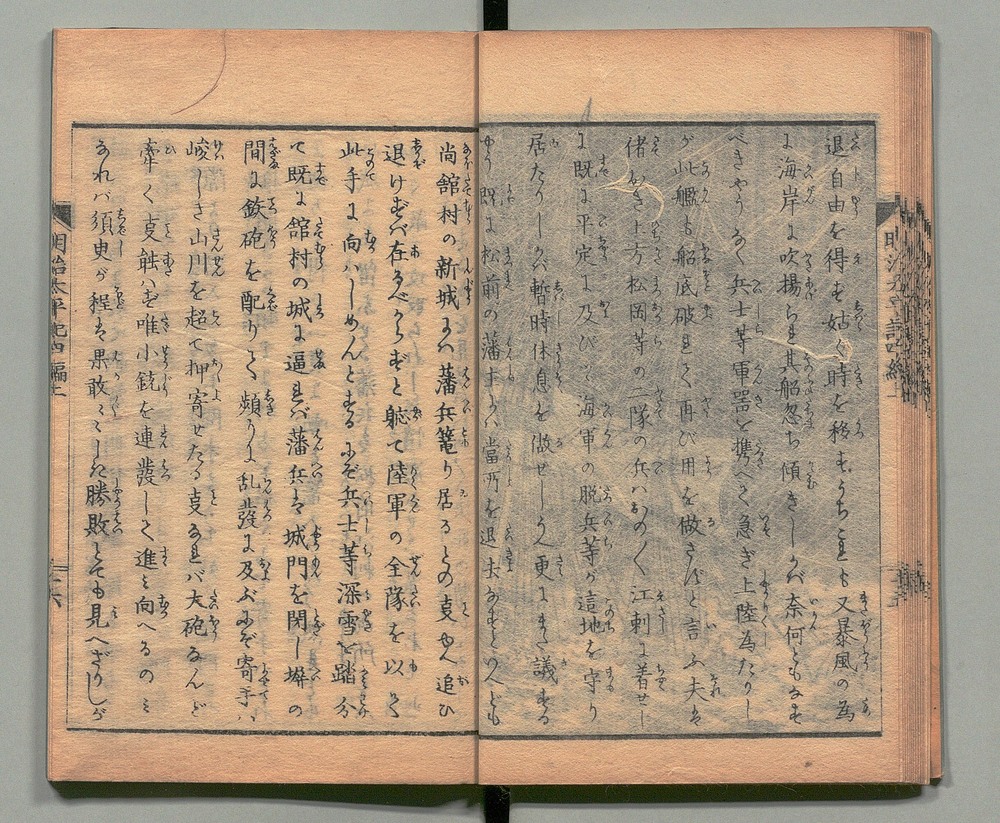 退自由を得も姑く時を移せしうちこれも又暴風の為
に海岸に吹揚られ其船忽ち傾きしかバ奈何ともなす
べきやうなく兵士等軍器を携へて急ぎ上陸為たりし
が此艦も船底破れて再び用を做さずと言ふ夫は
偖おき上方松岡等の一隊の兵ハおのく江刺に着せし
に既に平定に及びて海軍の脱兵等が這地を守り
居たりしかバ暫時休息を做せしうへ更にまた議する
やう既に松前の藩士ハ當所を退去なすといへども
尚舘村の新城にハ藩兵篭り居るとの㕝ゆへ追ひ
退けずバ在るべからずと軈て陸軍の全隊を以て
此手に向ハしめんとするにぞ兵士等深雪を踏分
て既に舘村の城に逼れバ藩兵は城門を閉し塀の
間に鉄砲を配りて頻りに乱發に及ぶにぞ寄手ハ
峻しき山川を超て押寄せたる㕝なれバ大砲なんど
牽く㕝能はず唯小銃を連發して進み向へるのミ
なれバ須臾が程は果敢〻〻しき勝敗とても見へざりしが
明治太平記四編二